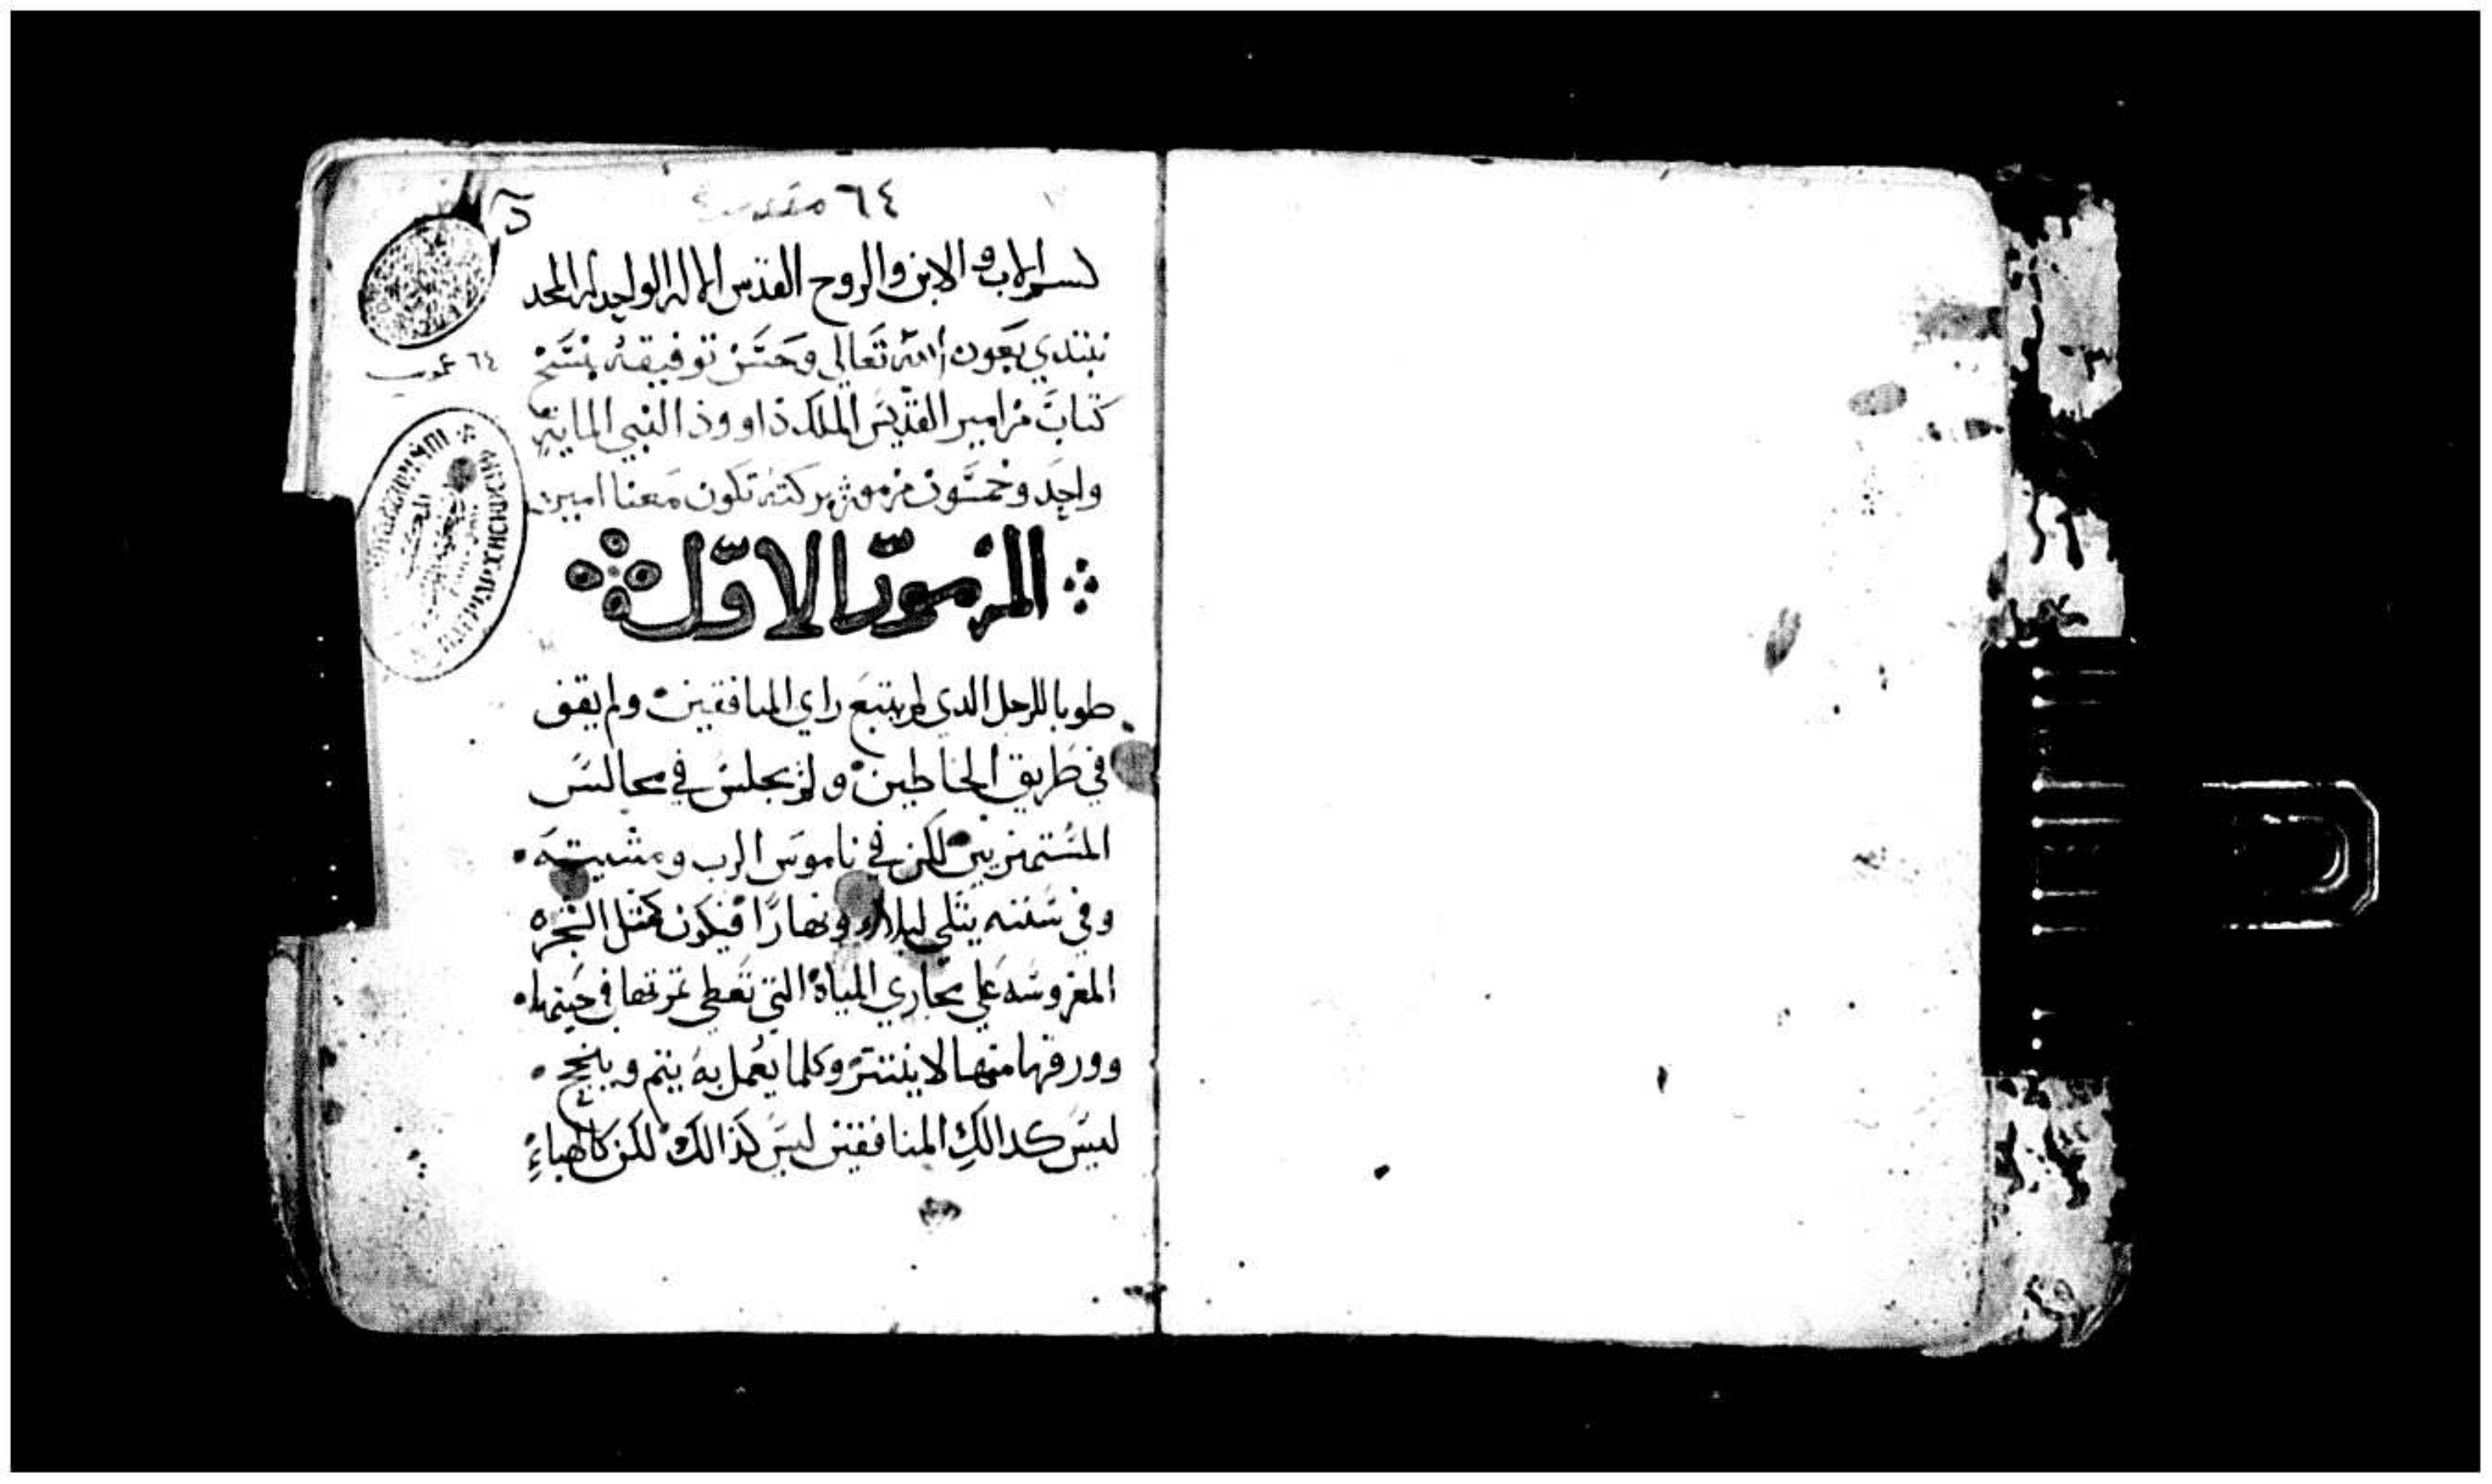 ٦٤ مقدسة
بسم الاب والابن والروح القدس الاله الواحد له المجد
نبتدي بعون الله تعالى وحسن توفيقه بنسخ
كتاب مزامير القديس الملك داوود النبي الماية
واحد وخمسون مزمور بركته تكون معنا امين
المزمور الاول
طوبا للرجل الدي لم يتبع راي المنافقين ولم يقف
في طريق الخاطين ولم يجلس في مجالس
المستهزيين لكن في ناموس الرب ومشيته
وفي سننه يتلي ليلا ونهارًا فيكون كمثل الشجره
المغروسه علي مجاري المياة التي تعطي ثمرتها في حينها
وورقها منها لا ينتتر وكلما يعمل به يتم وينجح
ليس كدالك المنافقين ليس كذالك لكن كالهباء
٦٤ عربي